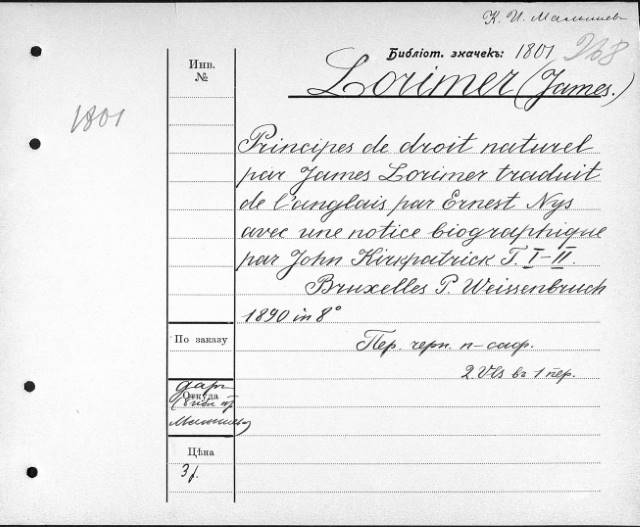 К. И. Малышев
Библіот. значекъ: 1801 268
Инв.
№
Lorimer (James.)
1801
Principes de droit naturel
par James Lorimer traduit
de l'anglais par Ernest Nys
avec une notice biographique
par John Kirkpatrick T. I-II.
Bruxelles P. Weissenbruch
1890 in 8°
По заказу
Пер. черн. п-саф.
2 Vls въ 1 пер.
даръ
Откуда
Малышев
Цѣна
3 р.